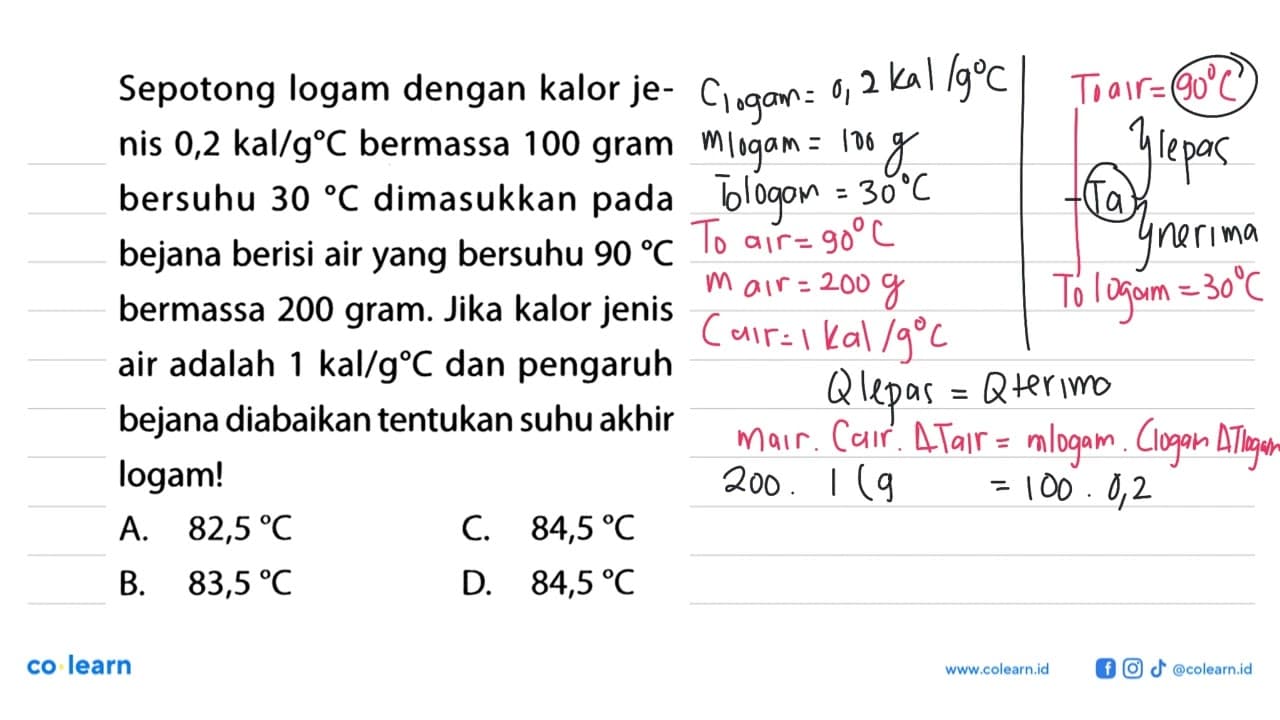 Sepotong logam dengan kalor je-
nis 0,2 kal/g°C bermassa 100 gram
bersuhu 30 °C dimasukkan pada
bejana berisi air yang bersuhu 90 °C
bermassa 200 gram. Jika kalor jenis
air adalah 1 kal/g°C dan pengaruh
bejana diabaikan tentukan suhu akhir
logam!
A. 82,5 °C C. 84,5 °C
B. 83,5 °C D. 84,5 °C
Clogam = 0,2 kal/g°C
mlogam = 100 g
Tologam = 30°C
To air = 90°C
m air = 200 g
Cair = 1 kal/g°C
To air = 90°C
lepas
Ta
nerima
To logam = 30°C
Qlepas = Qterima
mair. Cair. ΔTair = mlogam. Clogam ΔTlogam
200. 1 (9 = 100 . 0,2
co learn
www.colearn.id @colearn.id